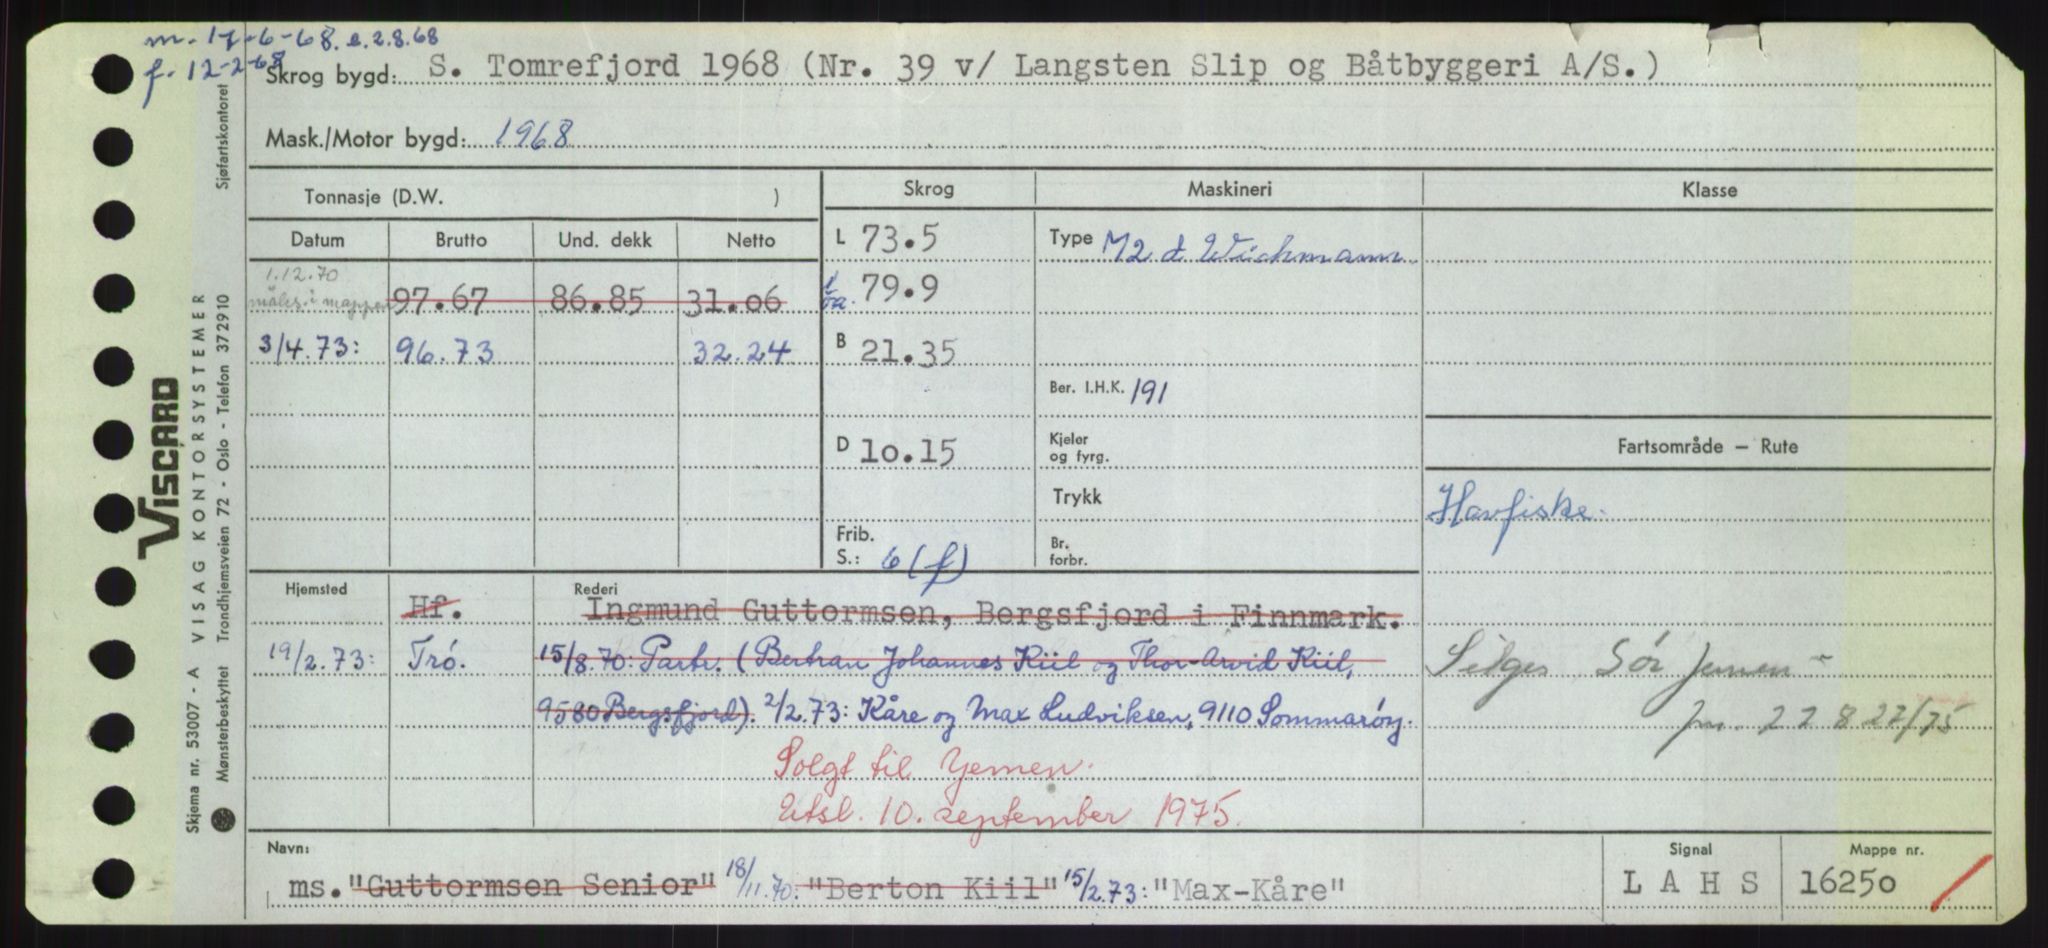 m. 17-6-68. e. 2.8.68
f. 12-2-68
Skrog bygd: S. Tomrefjord 1968 (Nr. 39 v/ Langsten Slip og Båtbyggeri A/S.)
Mask./Motor bygd: 1968
Tonnasje (D.W. )
Datum Brutto Und. dekk Netto
1.12.70
måles i mappen 97.67 86.85 31.06
3/4.73: 96.73 32.24
Skrog
L 73.5
l oa. 79.9
B 21.35
D 10.15
Frib.
S.: 6 (f)
Maskineri
Type M2 d Wichmann
Ber. I.H.K. 191
Kjeler
og fyrg.
Trykk
Br.
forbr.
Klasse
Fartsområde – Rute
Havfiske.
Selges Sør Jemen -
jnr. 22827/75
Hjemsted Hf.
Rederi
Ingmund Guttormsen, Bergsfjord i Finnmark.
19/2.73: Trö. 15/8.70: Partr. (Bertran Johannes Kiil og Thor-Arvid Kiil,
9580 Bergsfjord). 2/2.73: Kåre og Max Ludviksen, 9110 Sommarøy.
Solgt til Yemen.
Utsl. 10. september 1975.
Navn:
ms. "Guttormsen Senior" 18/11.70: "Berton Kiil" 15/2.73: "Max-Kåre"
Signal
L A H S
Mappe nr.
16250
VISCARD
Skjema nr. 53007 - A VISAG KONTORSYSTEMER
Mønsterbeskyttet Trondhjemsveien 72 - Oslo - Telefon 372910
Sjøfartskontoret